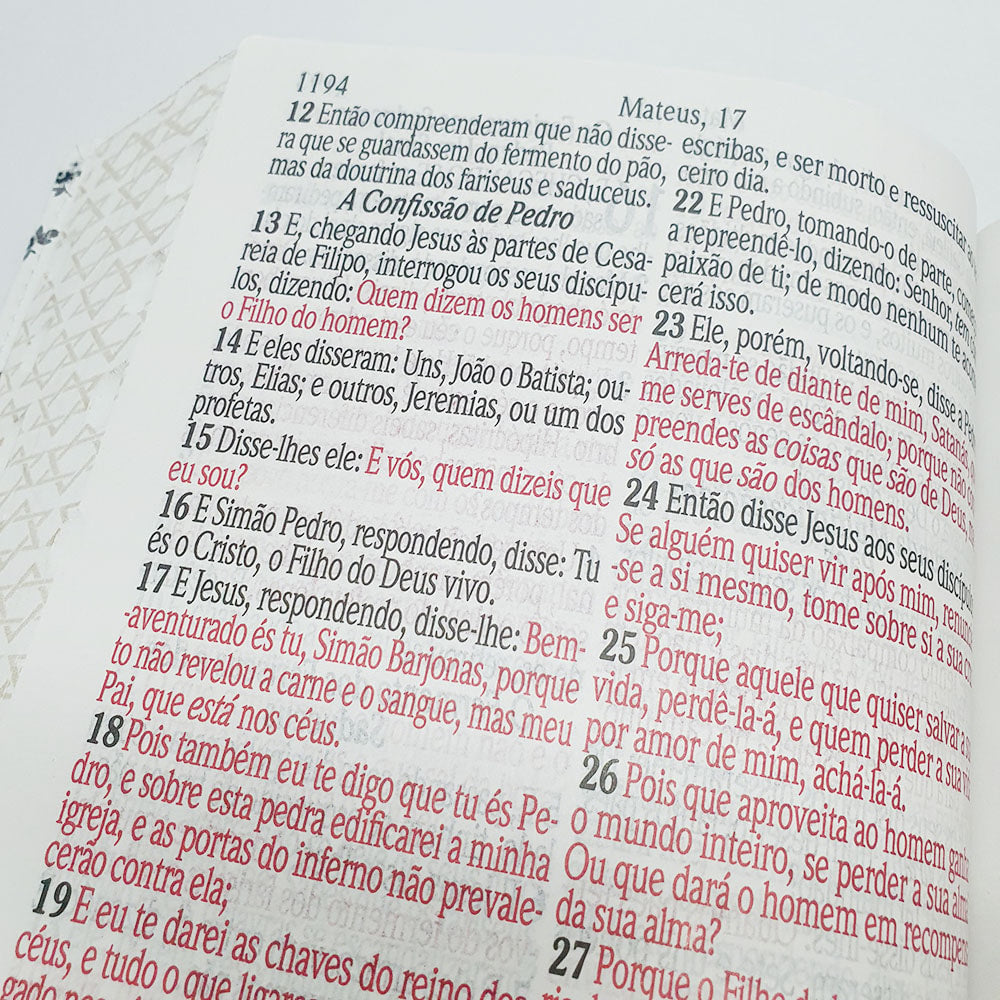 1194
Mateus, 17
12 Então compreenderam que não disse-
ra que se guardassem do fermento do pão,
mas da doutrina dos fariseus e saduceus.
A Confissão de Pedro
13 E, chegando Jesus às partes de Cesa-
reia de Filipo, interrogou os seus discípu-
los, dizendo: Quem dizem os homens ser
o Filho do homem?
14 E eles disseram: Uns, João o Batista; ou-
tros, Elias; e outros, Jeremias, ou um dos
profetas.
15 Disse-lhes ele: E vós, quem dizeis que
eu sou?
16 E Simão Pedro, respondendo, disse: Tu
és o Cristo, o Filho do Deus vivo.
17 E Jesus, respondendo, disse-lhe: Bem-
-aventurado és tu, Simão Barjonas, porque
to não revelou a carne e o sangue, mas meu
Pai, que está nos céus.
18 Pois também eu te digo que tu és Pe-
dro, e sobre esta pedra edificarei a minha
igreja, e as portas do inferno não prevale-
cerão contra ela;
19 E eu te darei as chaves do reino dos
céus, e tudo o que ligares
escribas, e ser morto e ressuscitar ao
ceiro dia.
22 E Pedro, tomando-o de parte,
a repreendê-lo, dizendo: Senhor, tem
paixão de ti; de modo nenhum te
cerá isso.
23 Ele, porém, voltando-se, disse a
Arreda-te de diante de mim, Satanás,
me serves de escândalo; porque não
preendes as coisas que são de Deus,
só as que são dos homens.
24 Então disse Jesus aos seus
Se alguém quiser vir após mim,
-se a si mesmo, tome sobre si a sua
e siga-me;
25 Porque aquele que quiser salvar a
vida, perdê-la-á, e quem perder a sua
por amor de mim, achá-la-á.
26 Pois que aproveita ao homem
o mundo inteiro, se perder a sua alma
Ou que dará o homem em
da sua alma?
27 Porque o Filho